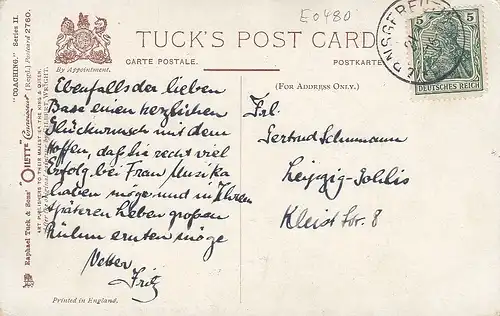 E0480
TUCK'S POST CARD
CARTE POSTALE.
POSTKARTE
By Appointment.
(FOR ADDRESS ONLY.)
5 5
DEUTSCHES REICH
Raphael Tuck & Sons' "OILETTE" Connoisseur (Regd.) Postcard 2760.
"COACHING." Series II.
ART PUBLISHERS TO THEIR MAJESTIES THE KING & QUEEN.
Ebenfalls der lieben
Base einen herzlichen
Glückwunsch mit dem
Hoffen, daß sie recht viel
Erfolg bei Frau Musika
haben möge und in Ihrem
späteren Leben großen
Ruhm ernten möge
Vetter
Fritz
Frl.
Gertrud Schumann
Leipzig-Gohlis
Kleist Str. 8
Printed in England.